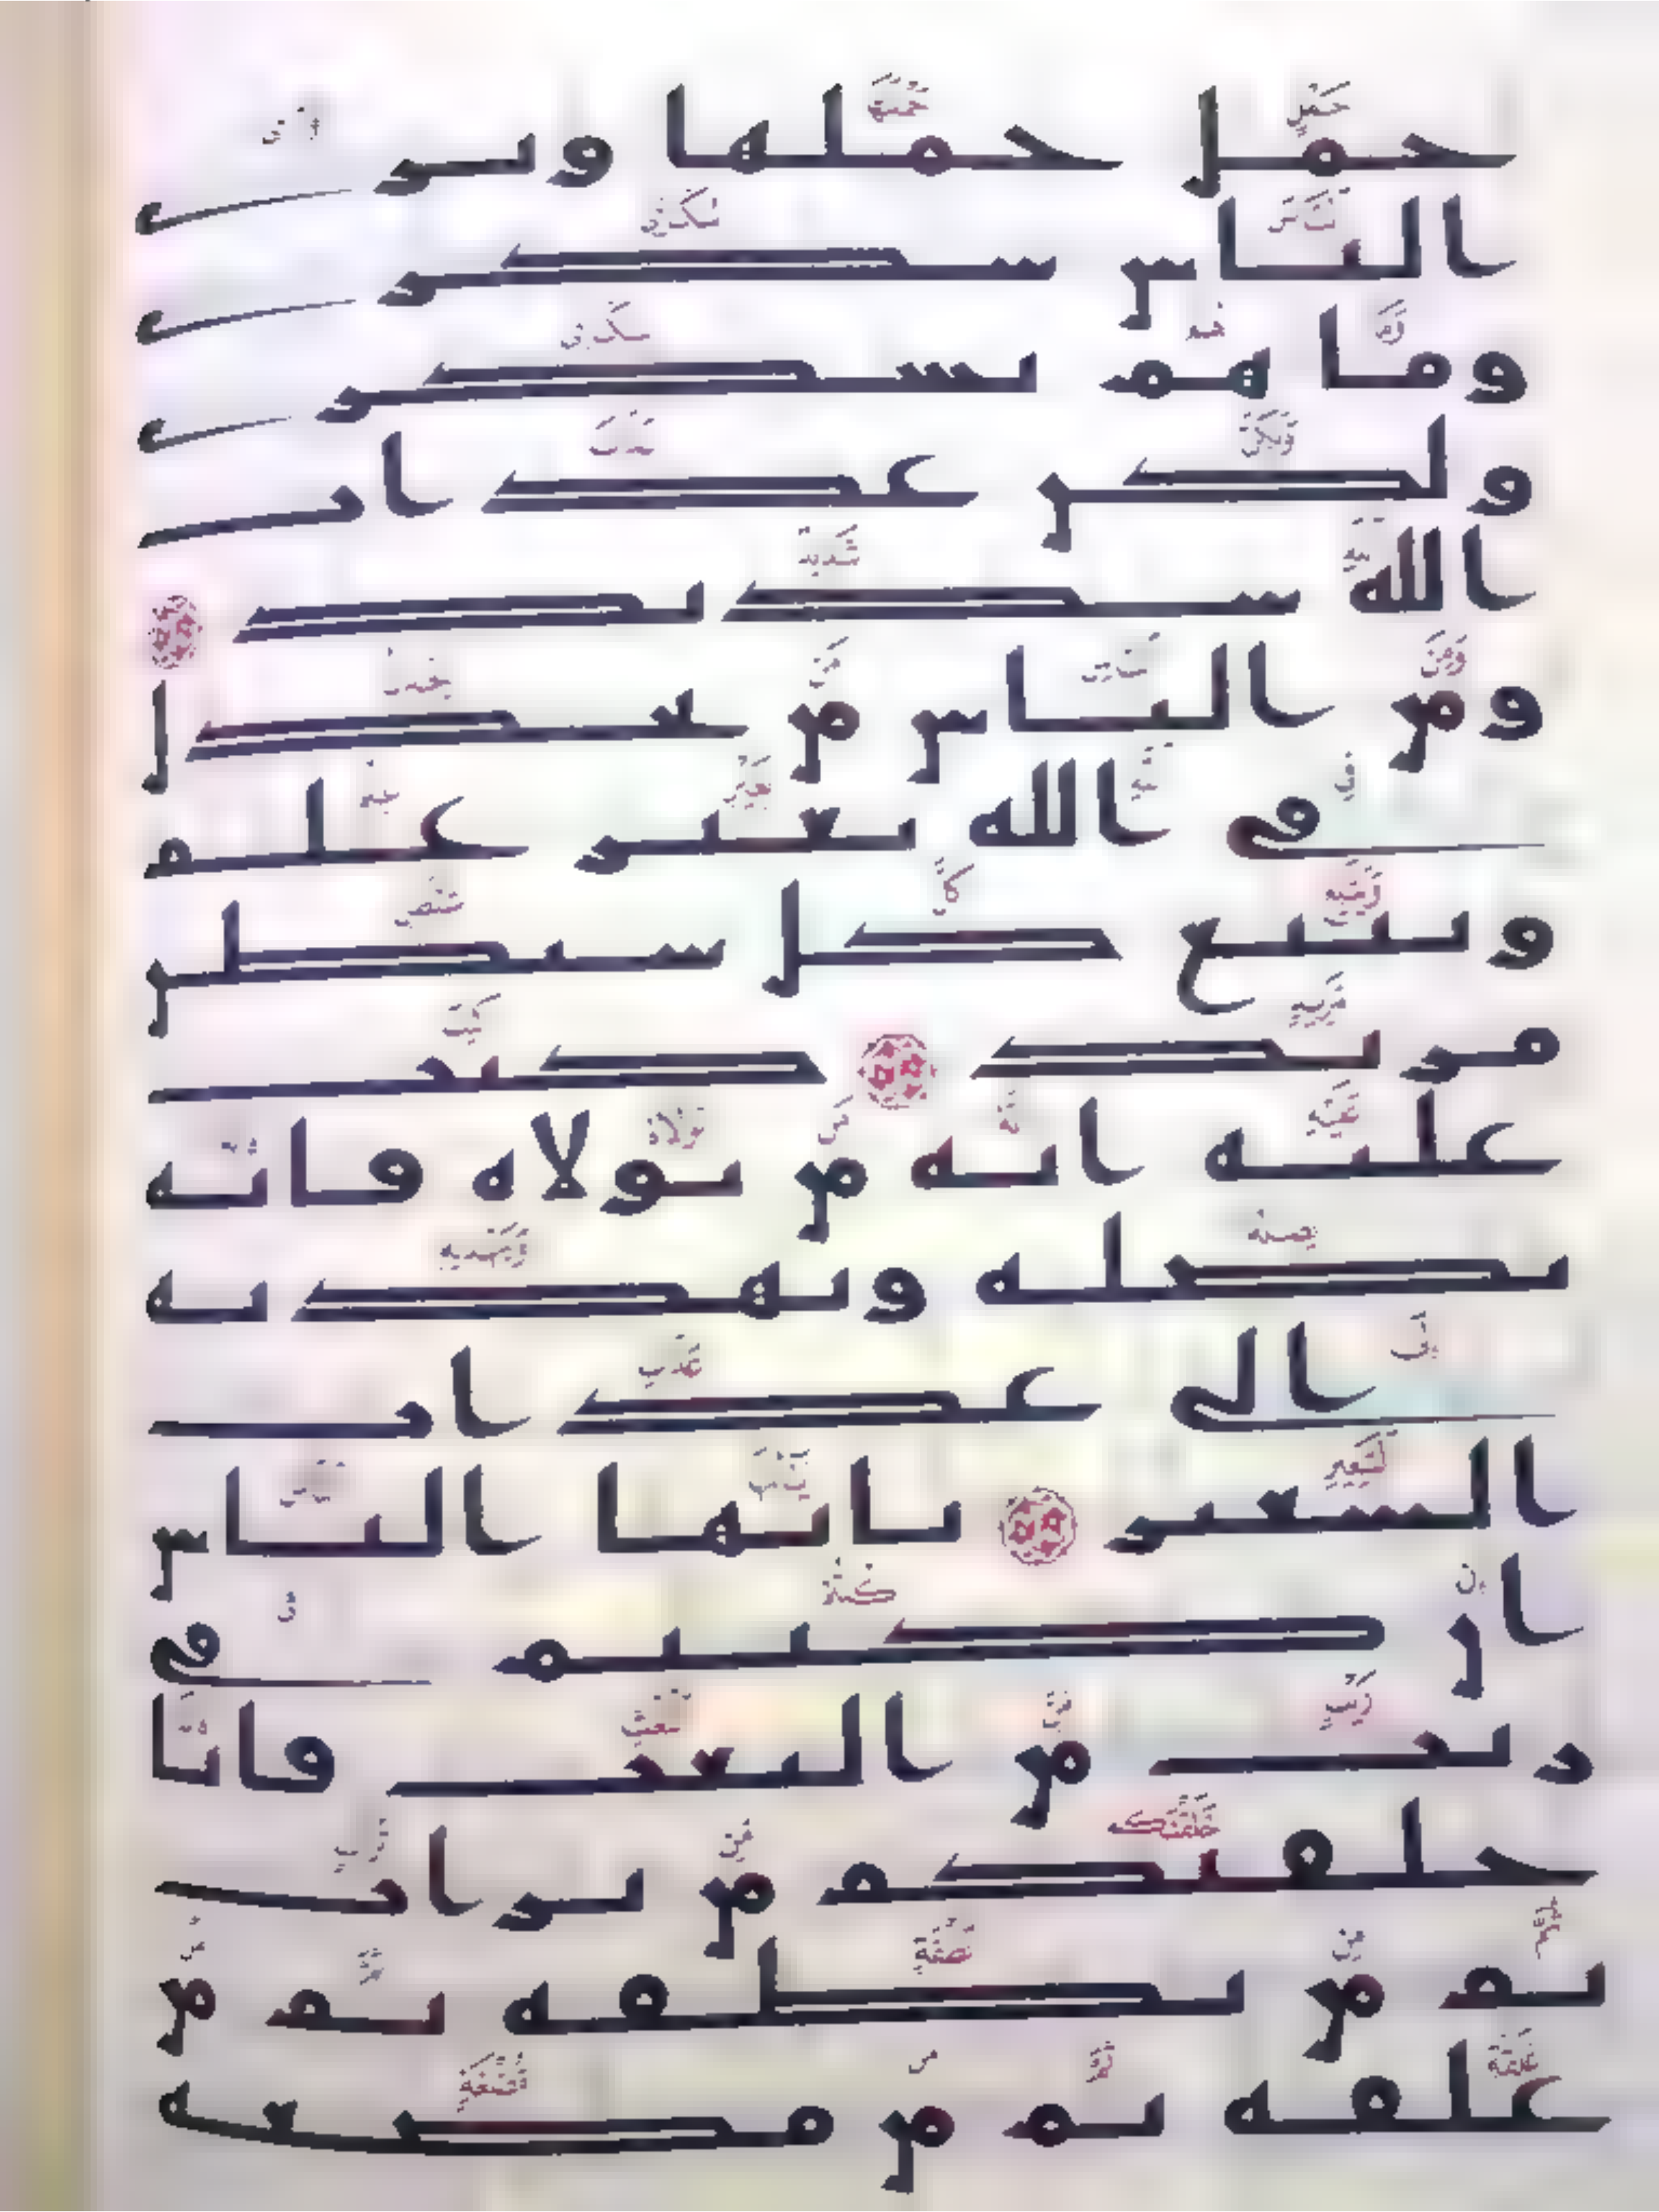 حمل حملها وترى
الناس سكرى
وما هم بسكرى
ولكن عذاب
الله شديد
ومن الناس من يجدل
في الله بغير علم
ويتبع كل شيطن
مريد كتب
عليه انه من تولاه فانه
يضله ويهديه
الى عذاب
السعير يايها الناس
ان كنتم في
ريب من البعث فانا
خلقنكم من تراب
ثم من نطفة ثم من
علقة ثم من مضغة